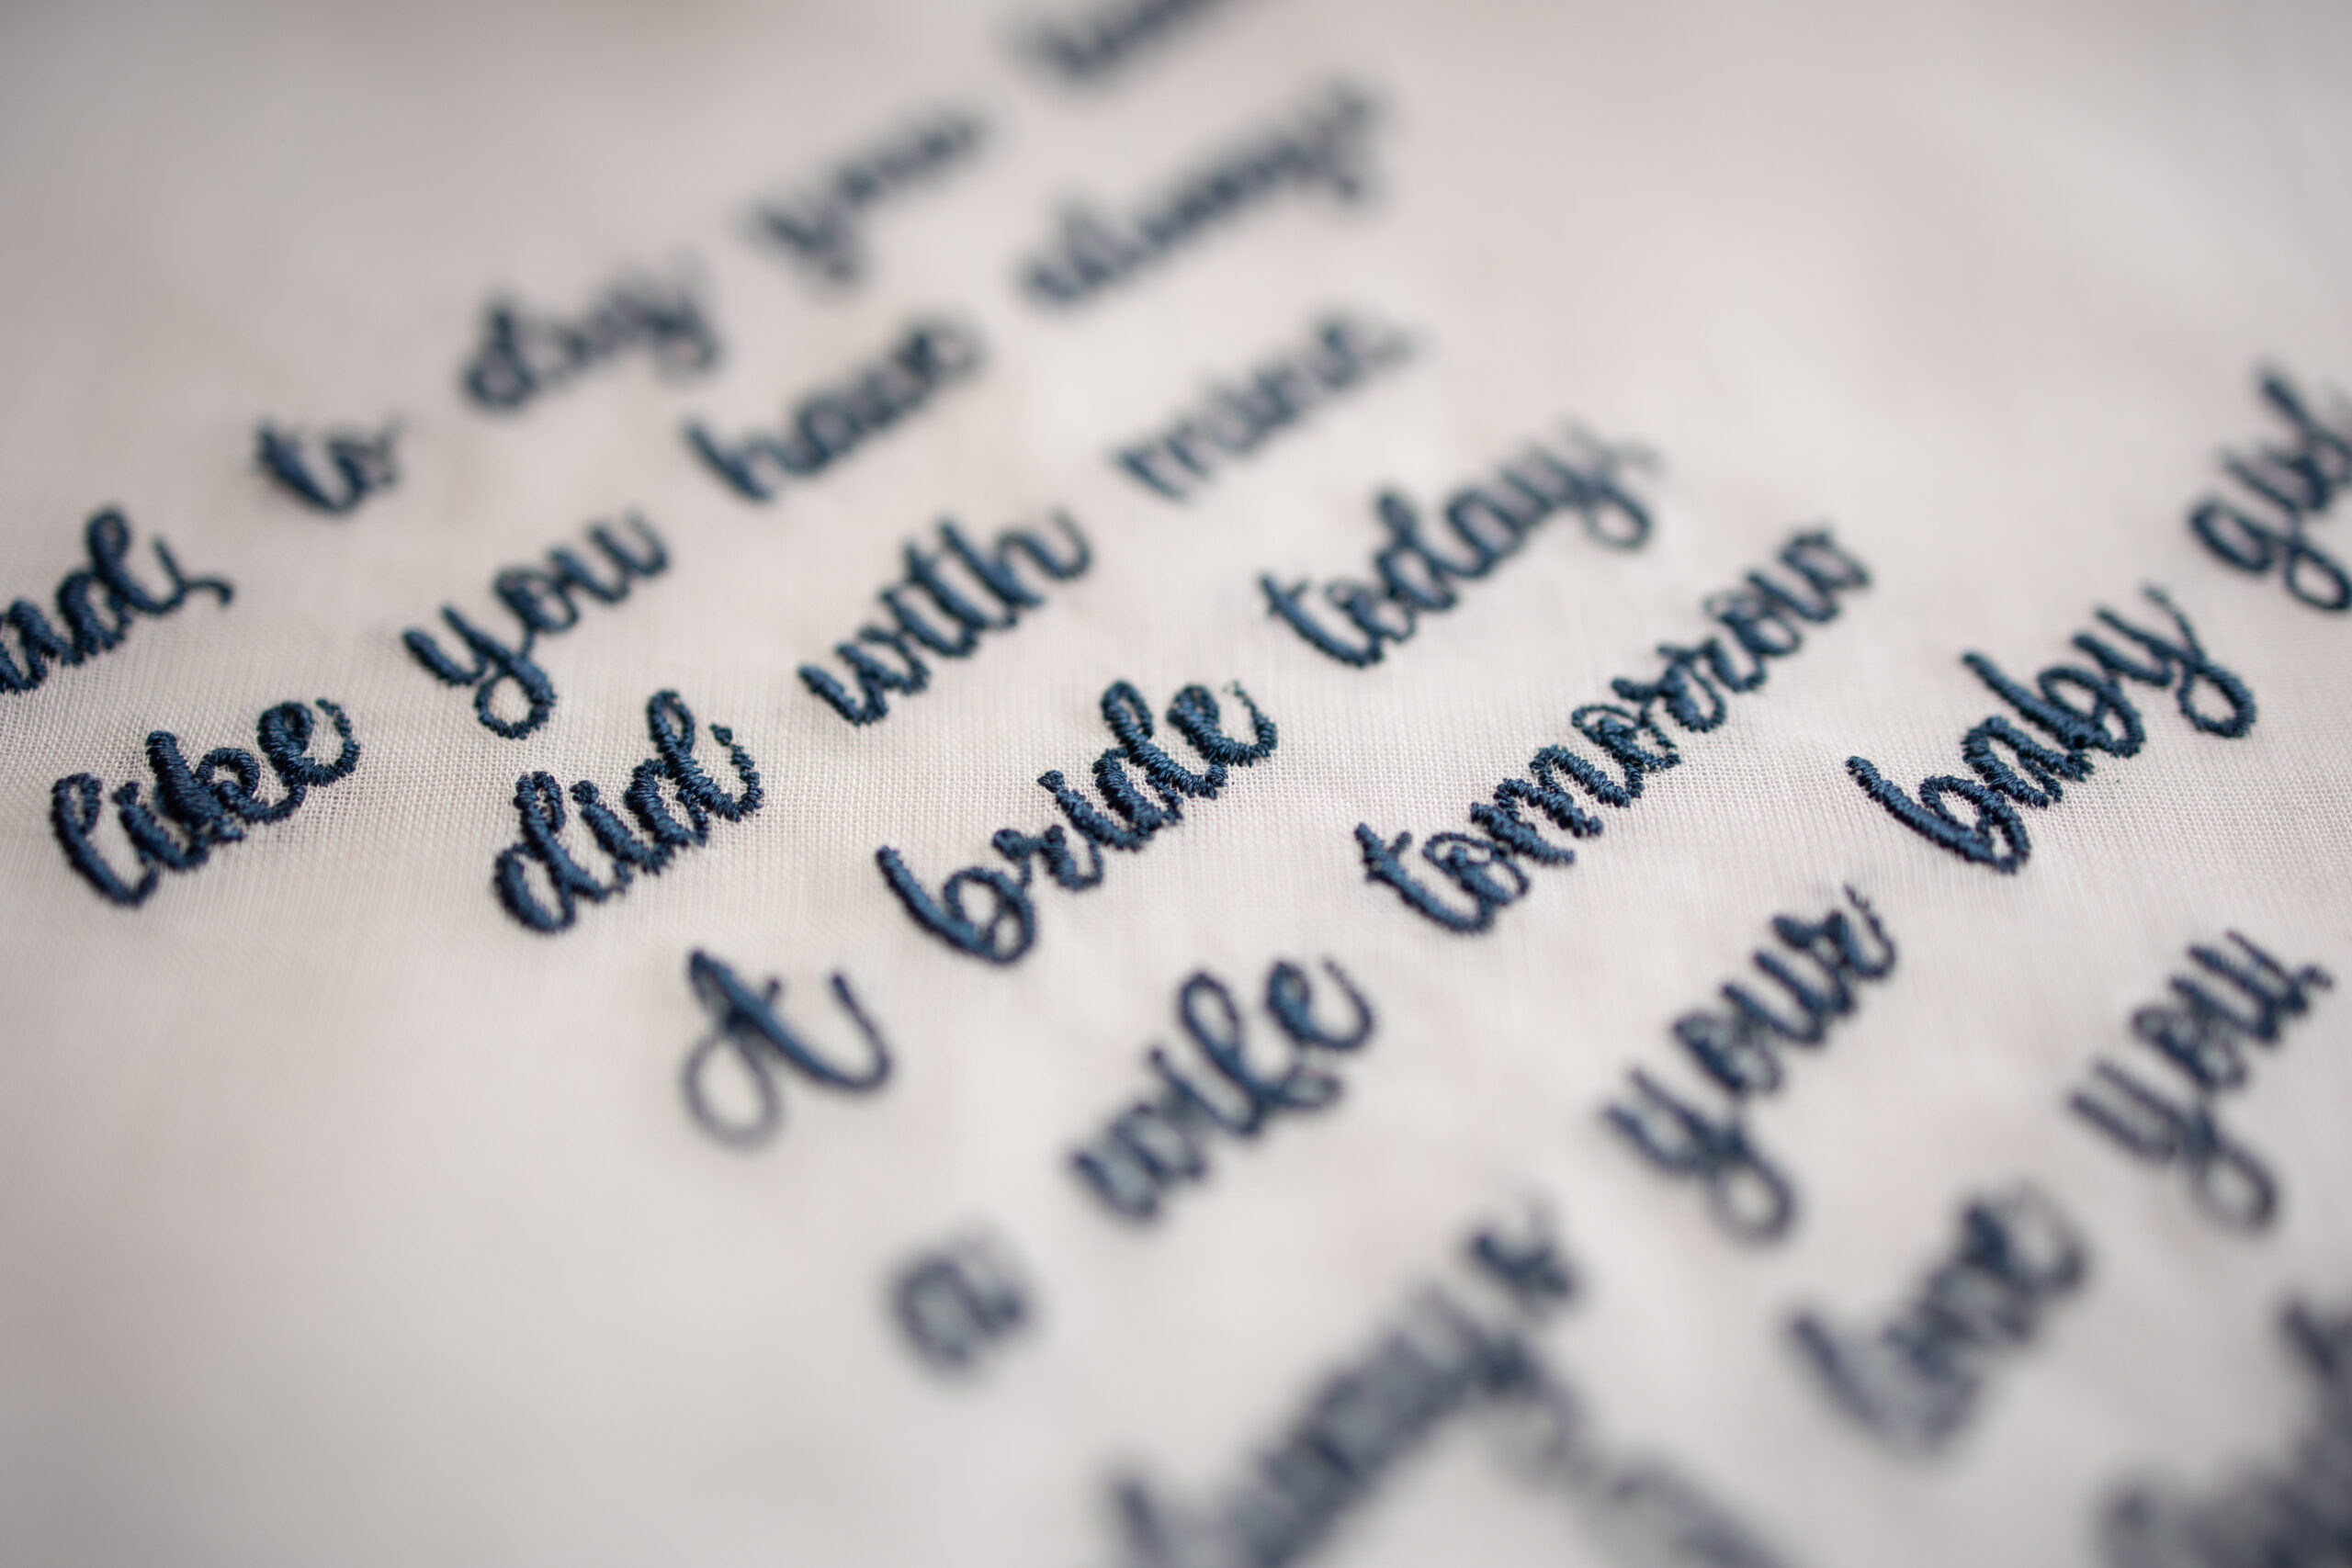 and, to dry your
like you have always
did with mine.
A bride today,
a wife tomorrow
always your baby girl
love you,